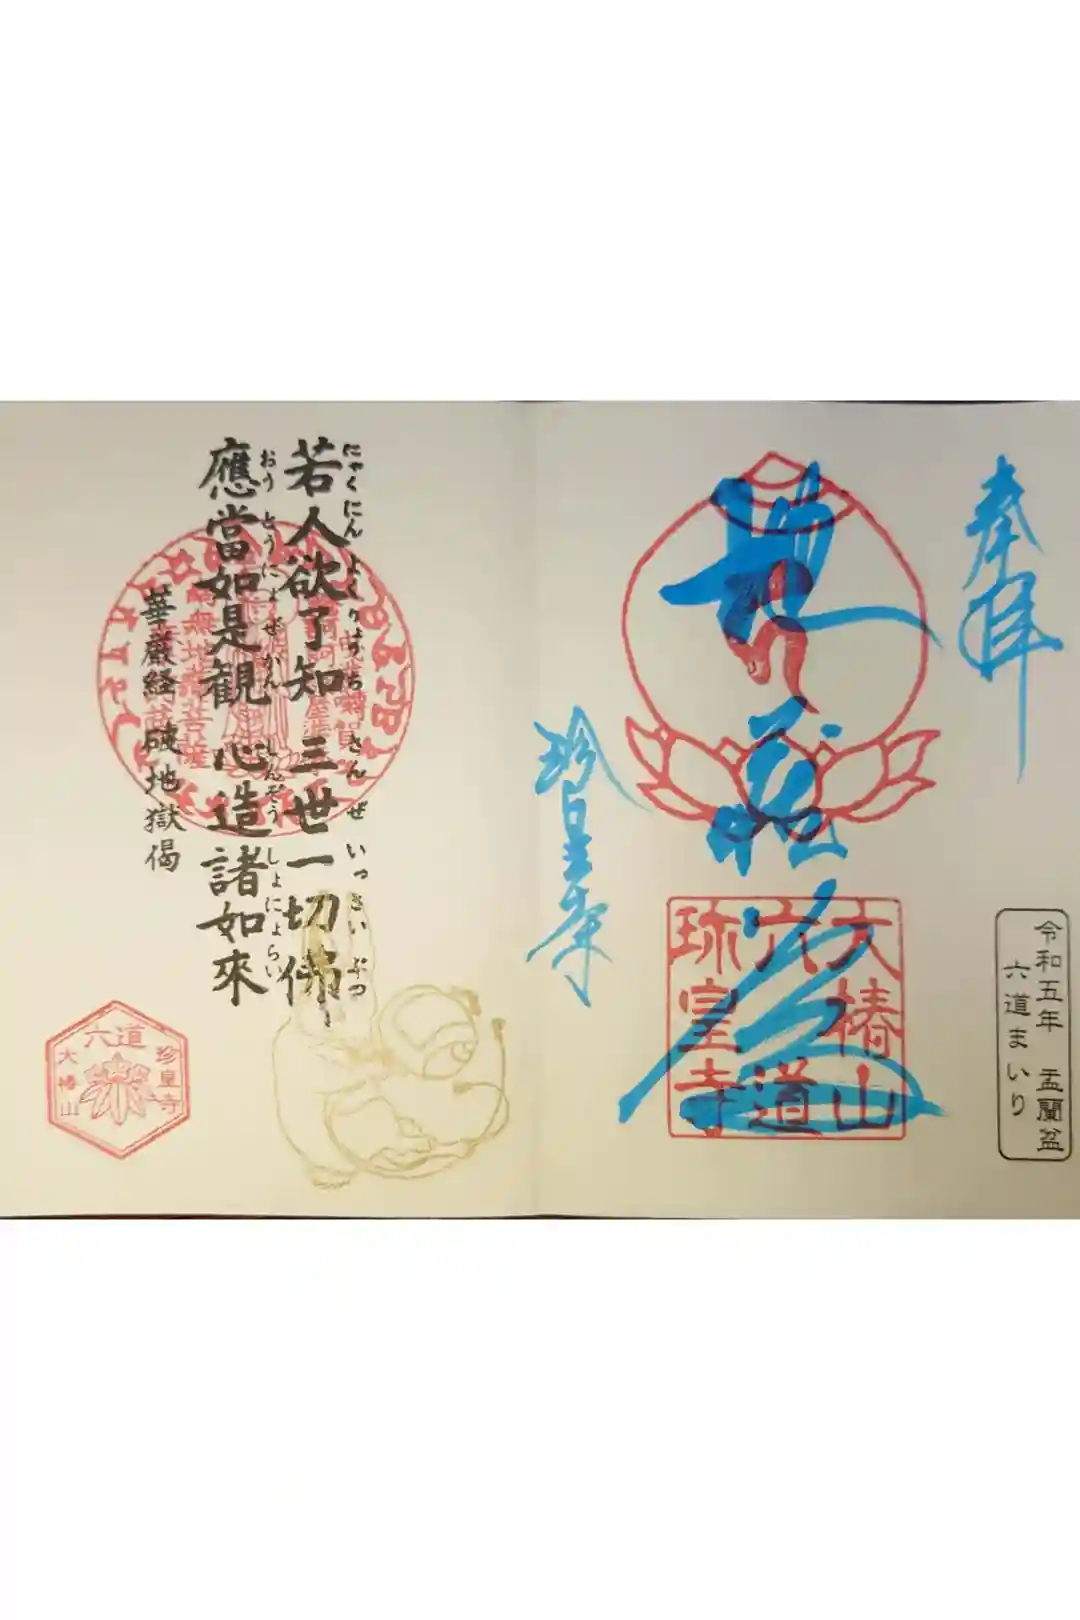 奉拝
令和五年 盂蘭盆
六道まいり
地蔵尊
大椿山
六道
珎皇寺
珍皇寺
にゃくにん よくりょうち さんぜ いっさい ぶつ
若人欲了知 三世一切佛
おうとうにょぜかん しんぞう しょにょらい
應當如是観 心造諸如來
華厳経 破地獄偈
南無地蔵菩薩
六道
珍皇寺
大椿山